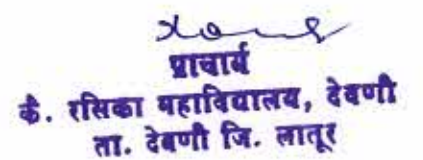 प्राचार्य
कै. रसिका महाविद्यालय, देवणी
ता. देवणी जि. लातूर